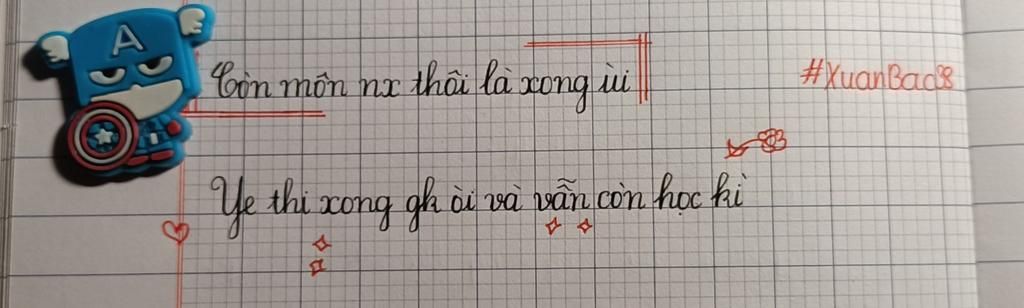 A
Còn môn nx thôi là xong ùi
#XuanBac38
Ye thi xong gk òi và vẫn còn học kì